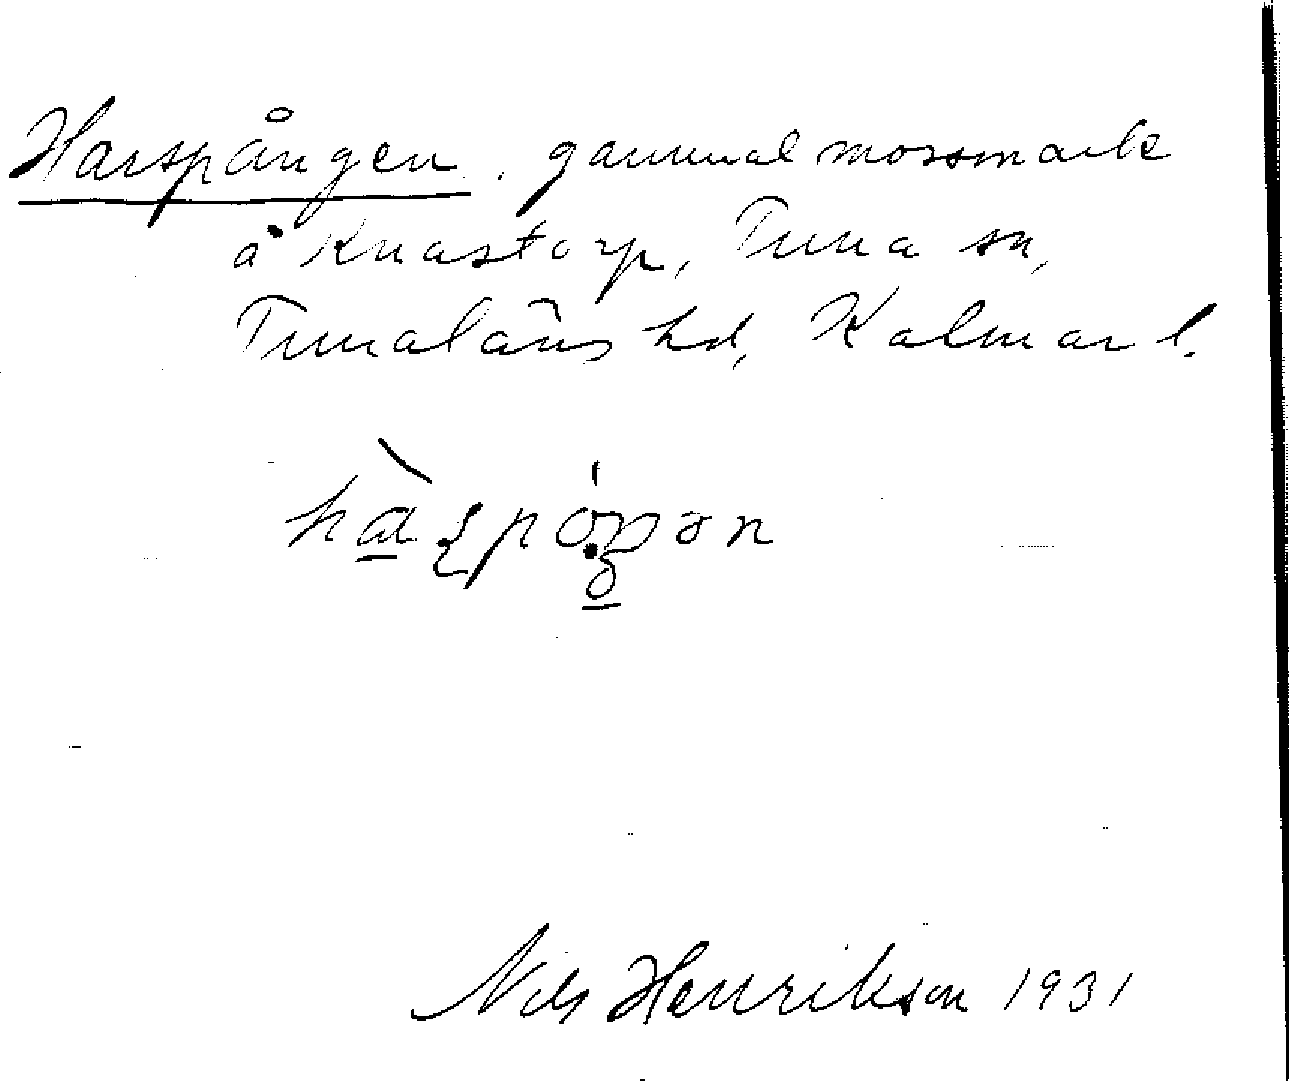 Harspången, gammal mossmark
å Knastorp, Tuna sn,
Tunaläns hd, Kalmar l.
Nils Henrikson 1931